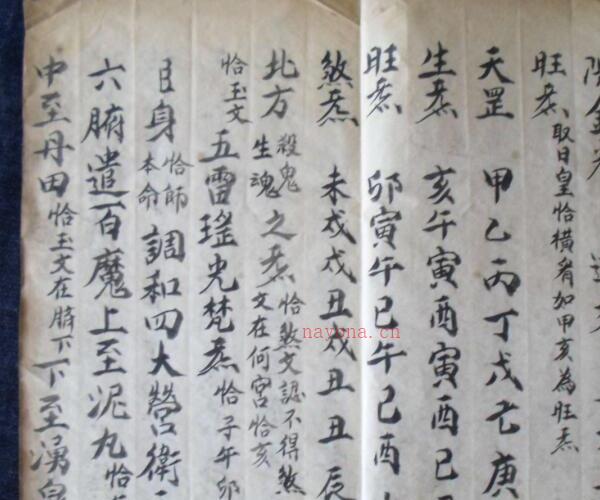 陰
旺炁取日皇恰橫看加甲亥為旺炁
天罡 甲乙丙丁戊己庚
生炁 亥午寅酉寅酉巳
旺炁 卯寅午巳午巳酉
煞炁 未戌戌丑戌丑丑辰
北方殺鬼生魂之炁恰煞文認不得煞文在何宮恰亥
恰玉文五雷瑤光梵炁恰子午卯
身恰師本命調和四大營衛
六腑遣百魔上至泥丸恰
中至丹田恰玉文在臍下下至湧泉
nayona.cn